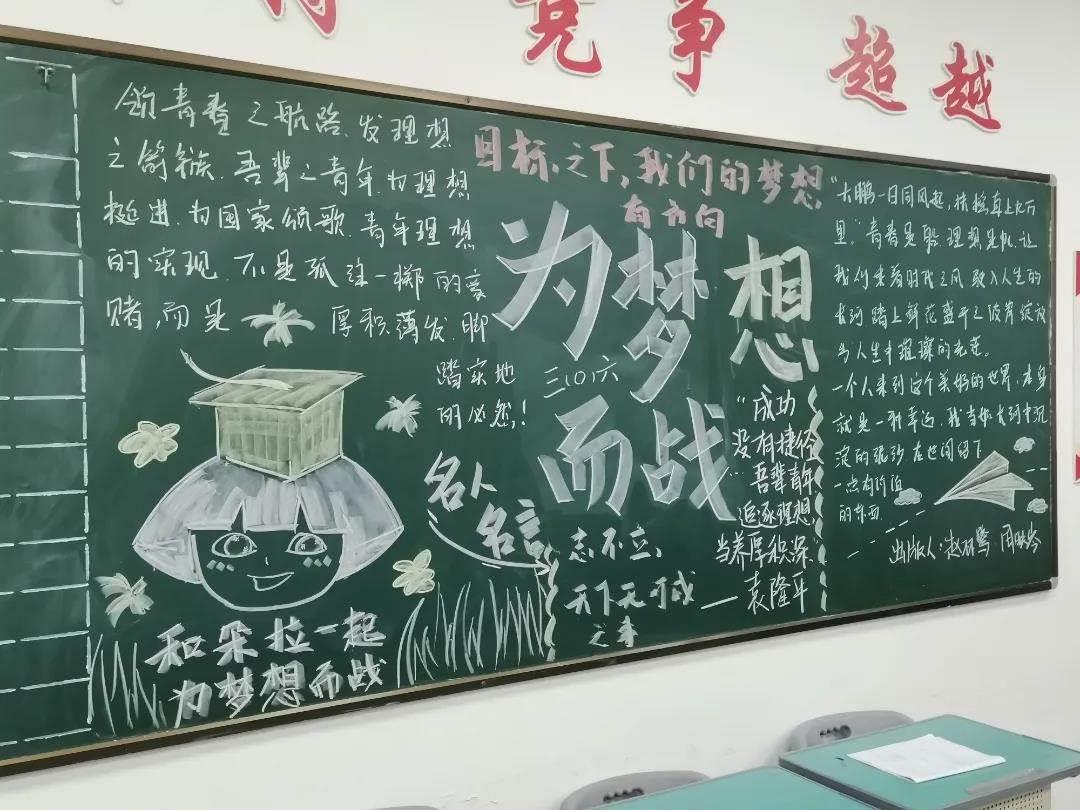 竞争 超越
领青春之航路,发理想
之箭镞.吾辈之青年为理想
挺进.为国家颂歌.青年理想
的实现.不是孤注一掷的豪
赌,而是 厚积薄发.脚
踏实地
的必然!
目标之下,我们的梦想
有方向
为梦想
三〇六
而战
名人
名言
志不立,
天下无可成
之事
"成功
没有捷径
"吾辈青年
追逐理想
当养厚积深"
——袁隆平
和朵拉一起
为梦想而战
"大鹏一日同风起,扶摇直上九万
里."青春是船,理想是帆.让
我们乘着时代之风驶入人生的
长河踏上鲜花盛开之彼岸绽放
出人生中璀璨的光茫。
一个人来到这个美好的世界.本身
就是一种幸运.我当如大河中沉
淀的泥沙在世间留下
一点有价值
的东西.
出版人:赵 周